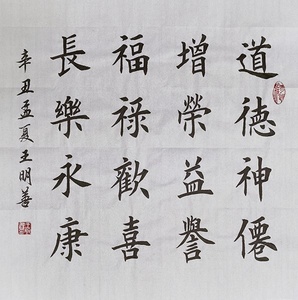 道德神僊
增榮益譽
福祿歡喜
長樂永康
辛丑孟夏王明善